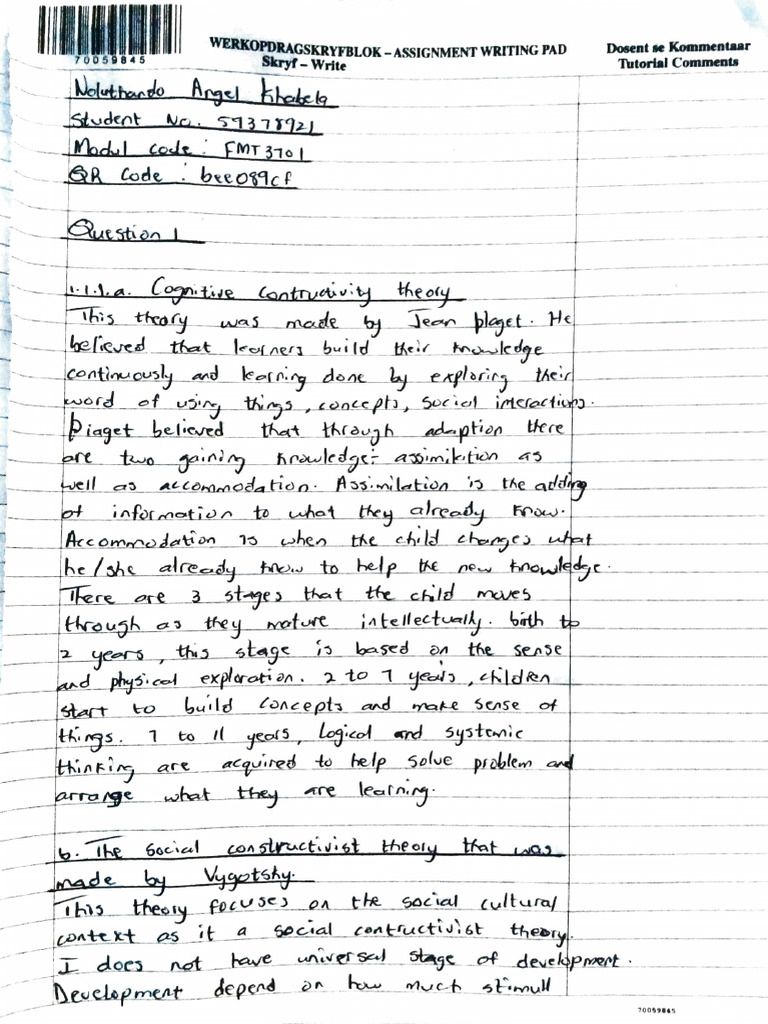 WERKOPDRAGSKRYFBLOK – ASSIGNMENT WRITING PAD
Skryf – Write
Dosent se Kommentaar
Tutorial Comments
70059845
Noluthando Angel Khabela
Student No. 59378921
Modul code : FMT3701
QR Code : bee089cf
Question 1
1.1.1.a. Cognitive contructivity theory
This theory was made by Jean piaget. He
believed that learners build their knowledge
continuously and learning done by exploring their
word of using things, concepts, social interactions.
Piaget believed that through adaption there
are two gaining knowledge:- assimilition as
well as accommodation. Assimilation is the adding
of information to what they already know.
Accommodation is when the child changes what
he/she already know to help the new knowledge.
There are 3 stages that the child moves
through as they mature intellectually. birth to
2 years, this stage is based on the sense
and physical exploration. 2 to 7 years, children
start to build concepts and make sense of
things. 7 to 11 years, Logical and systemic
thinking are acquired to help solve problem and
arrange what they are learning.
b. The social constructivist theory that was
made by Vygotshy.
This theory focuses on the social cultural
context as it a social contructivist theory.
I does not have universal stage of development.
Development depend on how much stimull
70059845